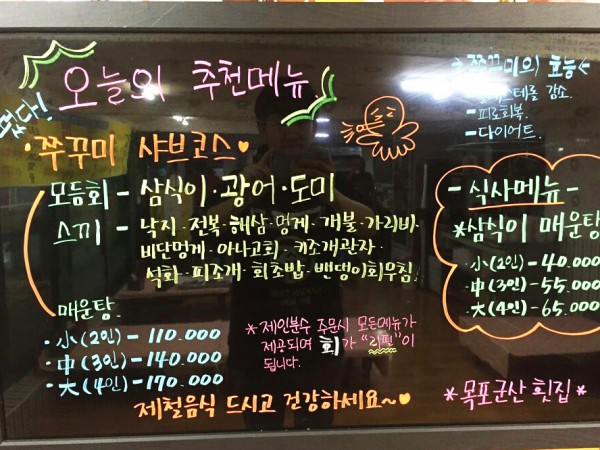 오늘의 추천메뉴
쭈꾸미 샤브코스♥
모듬회 - 삼식이·광어·도미
스끼 - 낙지·전복·해삼·멍게·개불·가리비·
비단멍게·아나고회·키조개관자·
석화·피조개·회초밥·밴댕이회무침
매운탕
·小(2인) - 110.000
·中(3인) - 140.000
·大(4인) - 170.000
*제인분수 주문시 모든메뉴가
제공되며 회가 "리필"이
됩니다.
제철음식 드시고 건강하세요~♥
쭈꾸미의 효능
감소.
- 피로회복.
- 다이어트.
- 식사메뉴 -
*삼식이 매운탕
·小(2인) - 40.000
·中(3인) - 55.000
·大(4인) - 65.000
*목포군산 횟집*